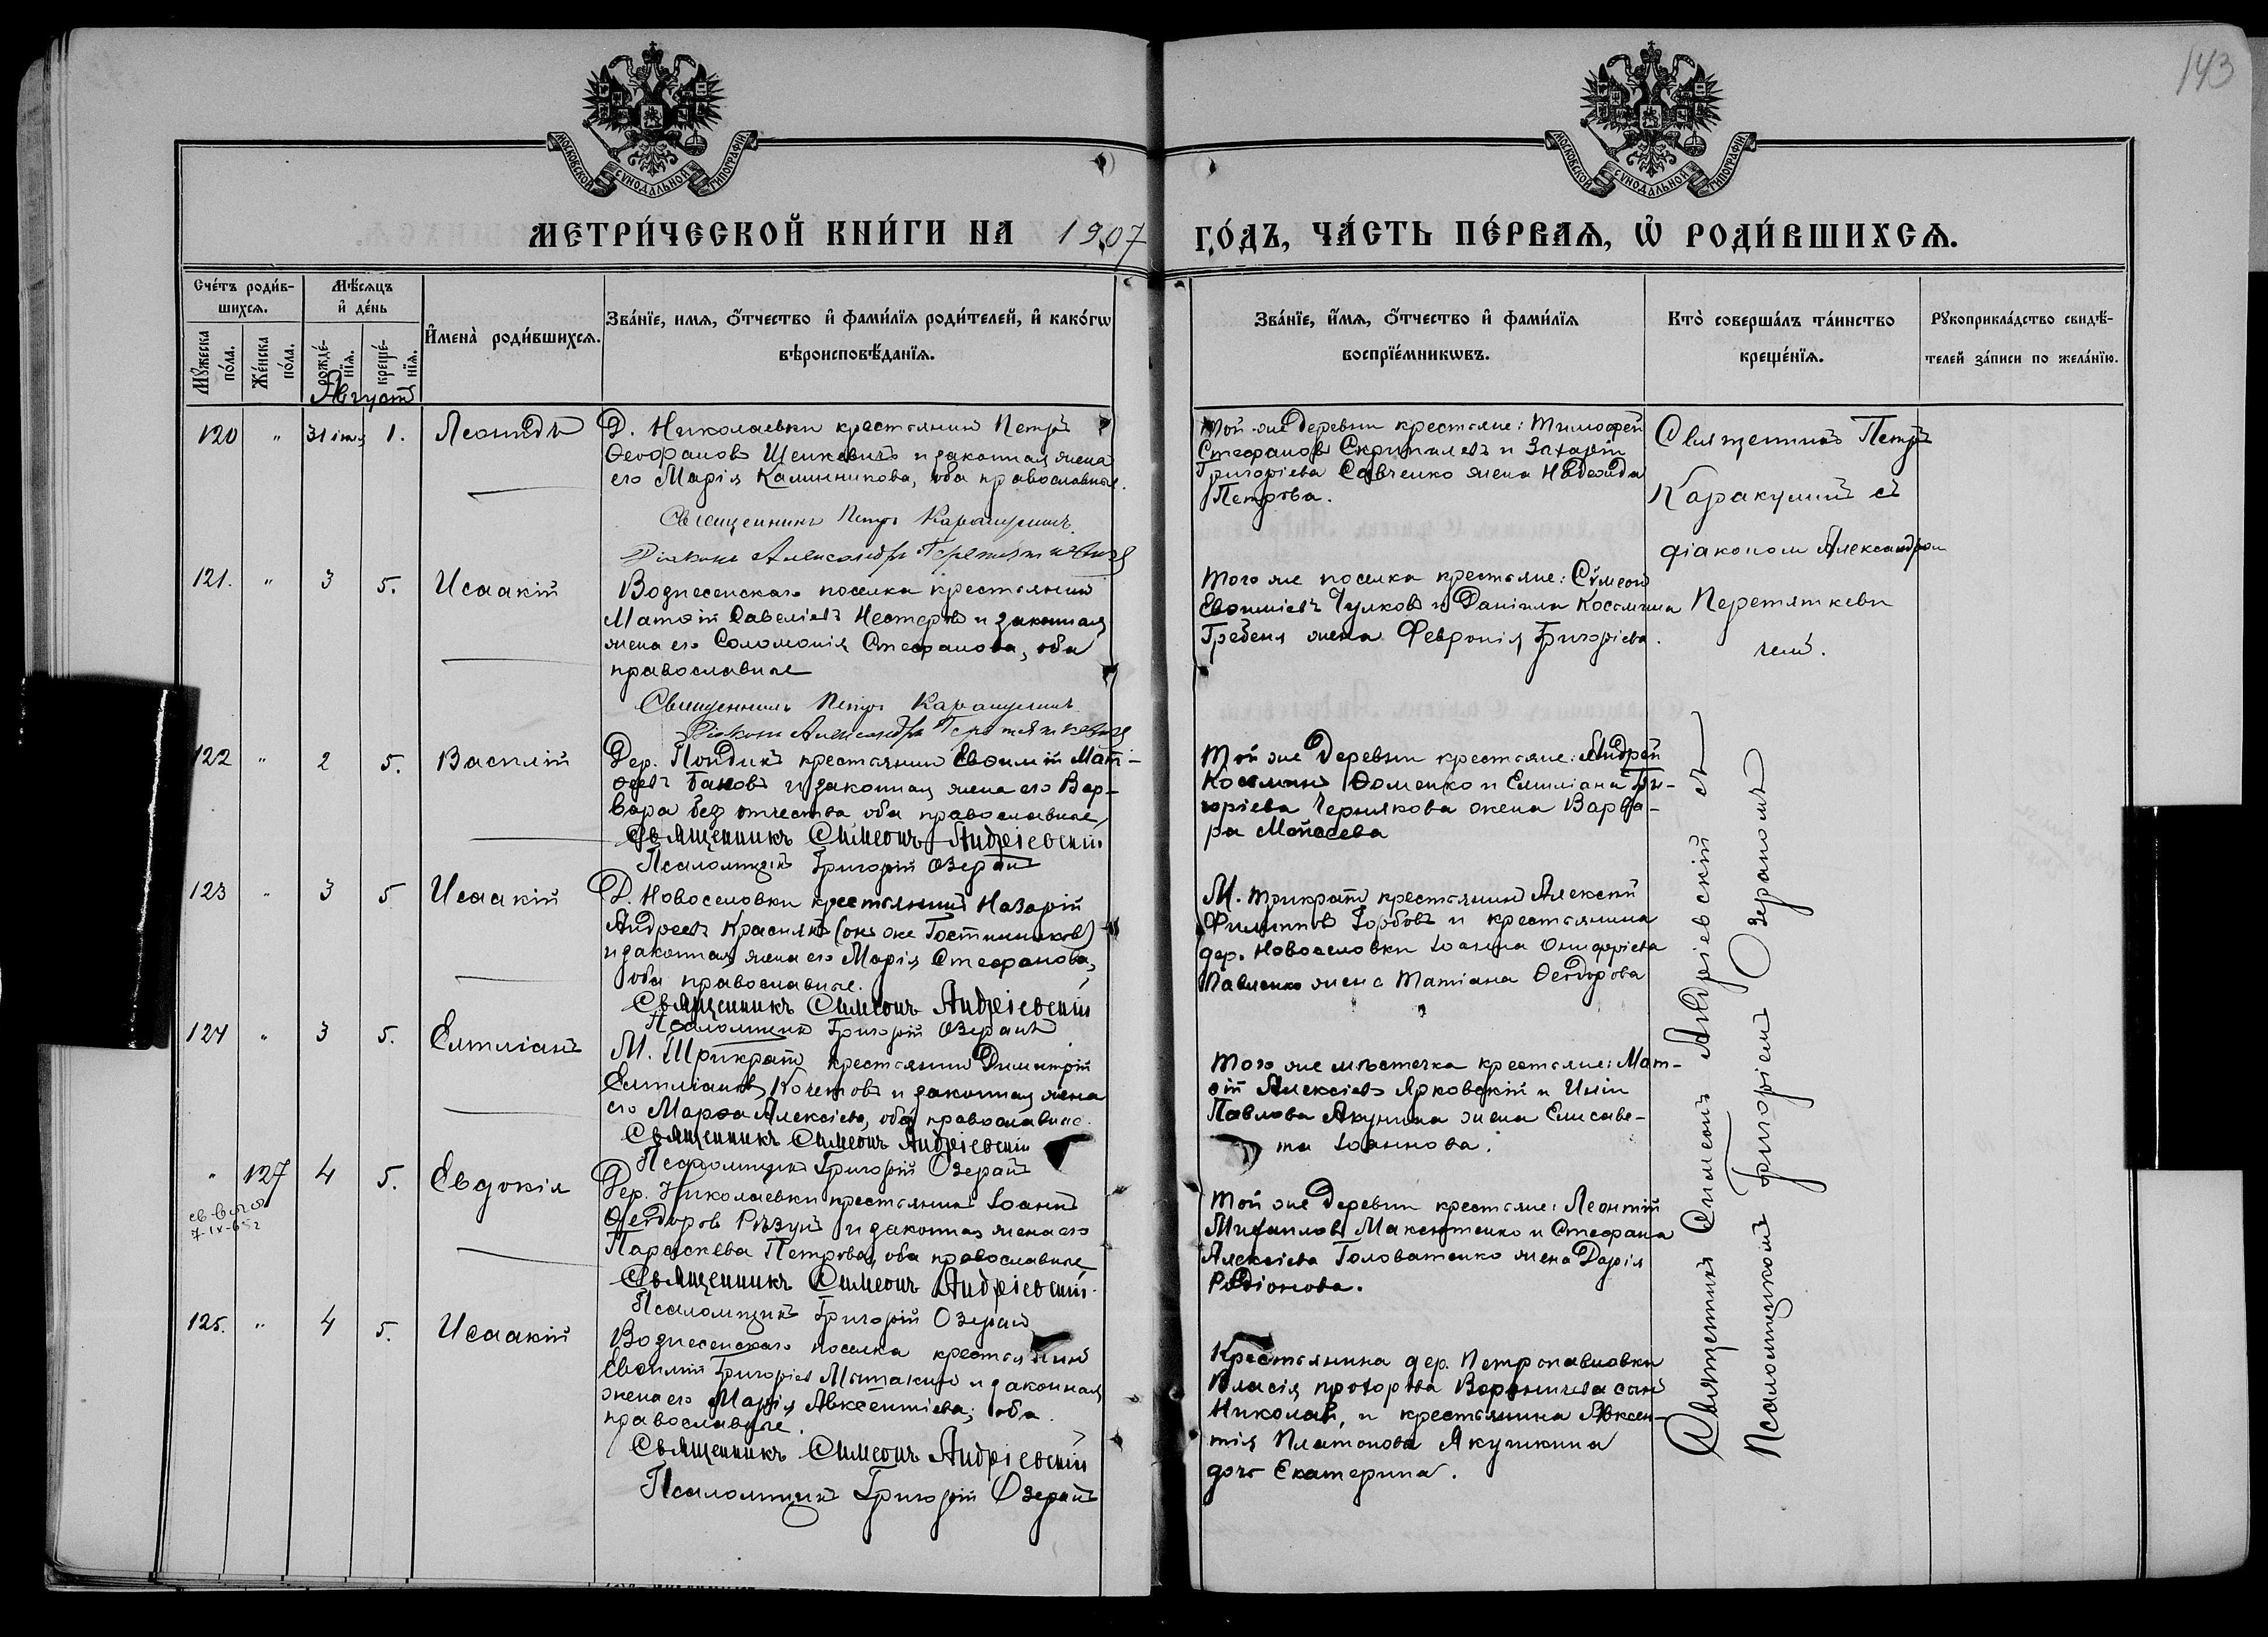 143
МОСКОВСКОЙ СѴНОДАЛЬНОЙ ТИПОГРАФІИ.
МОСКОВСКОЙ СѴНОДАЛЬНОЙ ТИПОГРАФІИ.
МЕТРИ́ЧЕСКОЙ КНИ́ГИ НА 1907 ГО́ДЪ, ЧА́СТЬ ПЕ́РВАѦ, Ѡ РОДИ́ВШИХСѦ.
Сче́тъ роди́в-
шихсѧ.
Мꙋжеска по́ла.
Же́нска по́ла.
Мѣ́сѧцъ
и҆ де́нь
рожде́-
нїѧ.
креще́-
нїѧ.
Августъ
И҆мена̀ роди́вшихсѧ.
Зва́нїе, имѧ, ѻ҆́тчество и҆ фами́лїѧ роди́телей, и҆ како́гѡ
вѣроисповѣ́данїѧ.
Зва́нїе, и҆́мѧ, ѻ҆́тчество и҆ фами́лїѧ
воспрїе́мникѡвъ.
Кто̀ соверша́лъ та́инство
креще́нїѧ.
Рꙋкоприкла́дство свидѣ́-
телей за́писи по жела́нїю.
120 " 31 іюля 1. Леонидъ
Д. Николаевки крестьянинъ Петръ
Ѳеофановъ Щенкевичъ и законная жена
его Марія Калинникова, оба православные.
Священникъ Петръ Каракулинъ
Діаконъ Александръ Перетяткевичъ
Той же деревни крестьяне: Тимофей
Стефановъ Скрипалевъ и Захарія
Григоріева Савченко жена Надежда
Петрова.
Священникъ Петръ
Каракулинъ съ
діакономъ Александромъ
Перетяткеви
чемъ.
121. " 3 5. Исаакій
Вознесенскаго поселка крестьянинъ
Матѳій Савеліевъ Нестеровъ и законная
жена его Соломонія Стефанова, оба
православные
Священникъ Петръ Каракулинъ
Діаконъ Александръ Перетяткевичъ
Того же поселка крестьяне: Сѵмеонъ
Евѳиміевъ Чулковъ и Даніила Космина
Гребеня жена Февронія Григоріева.
122 " 2 5. Василій
Дер. Пондикъ крестьянинъ Евѳимій Мат-
ѳеевъ Баковъ и законная жена его Вар-
вара безъ отчества оба православные
Священникъ Симеонъ Андріевскій
Псаломщикъ Григорій Озеранъ
Той же деревни крестьяне: Андрей
Косминъ Ѳоменко и Емиліана Гри-
горіева Чернякова жена Варва-
ра Мойсеева
123 " 3 5 Исаакій
Д. Новоселовки крестьянинъ Назарій
Андреевъ Краснякъ (онъ же Гостинниковъ)
и законная жена его Марія Стефанова,
оба православные.
Священникъ Симеонъ Андріевскій
Псаломщикъ Григорій Озеранъ
М. Трикратъ крестьянинъ Алексій
Филипповъ Горбовъ и крестьянина
дер. Новоселовки Іоанна Онифріева
Павленко жена Татіана Ѳеодорова
124 " 3 5. Емиліанъ
М. Трикратъ крестьянинъ Димитрій
Емиліановъ Кочетовъ и законная жена
его Марѳа Алексіева, оба православные.
Священникъ Симеонъ Андріевскій
Псаломщикъ Григорій Озеранъ
Того же мѣстечка крестьяне: Мат-
ѳій Алексіевъ Ярковскій и Иліи
Павлова Акунина жена Елисаве-
та Іоаннова.
" 127 4 5. Евдокія
7-IX-65 г
Дер. Николаевки крестьянинъ Іоаннъ
Ѳеодоровъ Рѣзунъ и законная жена его
Параскева Петрова, оба православные
Священникъ Симеонъ Андріевскій
Псаломщикъ Григорій Озеранъ
Той же деревни крестьяне: Леонтій
Михаиловъ Максютенко и Стефана
Алексіева Головатенко жена Дарія
Родіонова.
125. " 4 5. Исаакій
Вознесенскаго поселка крестьянинъ
Евѳимій Григоріевъ Мытакинъ и законная
жена его Марія Авксентіева, оба
православные.
Священникъ Симеонъ Андріевскій
Псаломщикъ Григорій Озеранъ
Крестьянина дер. Петропавловки
Власія Прохорова Воронина сынъ
Николай, и крестьянина Авксен-
тія Платонова Якушкина
дочь Екатерина.
Священникъ Симеонъ Андріевскій съ
Псаломщикомъ Григоріемъ Озераномъ